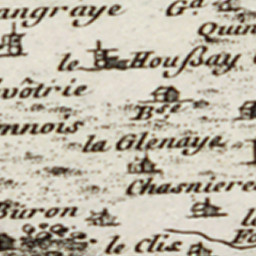 angraye
Gᵈ
Quin
le Houßay
vôtrie
Bˢᵉ
nnois
la Glenaye
Chasniere
Buron
le Clis
le